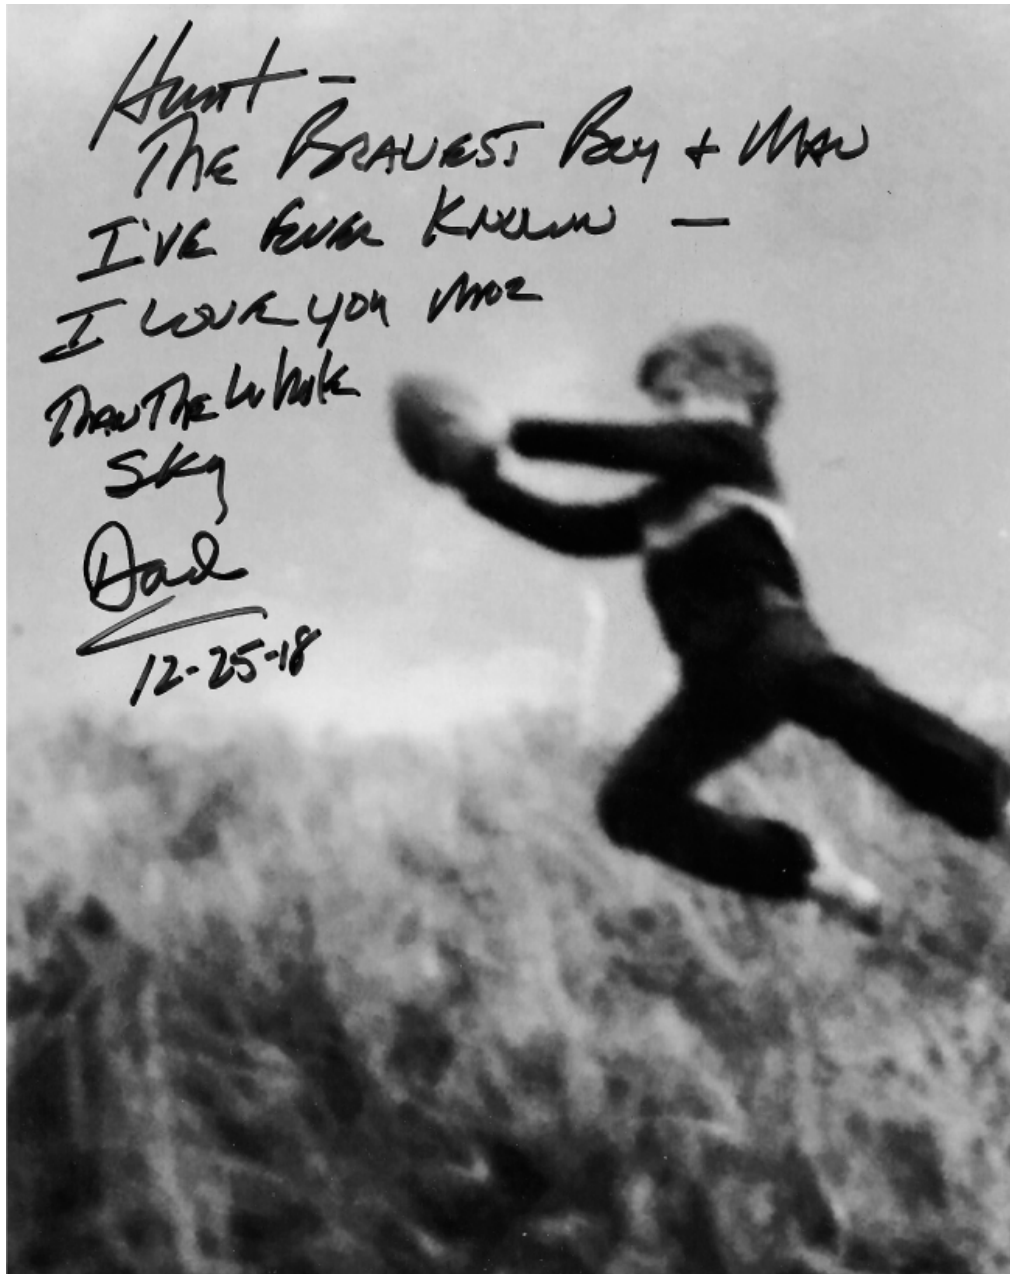 Hunt -
THE BRAVEST Boy + MAN
I'VE EVER KNOWN —
I LOVE you more
THAN THE Whole
Sky
Dad
12-25-18